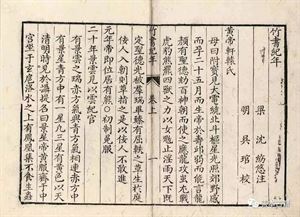 竹書紀年
梁 沈約注
明 吳琯校
黃帝軒轅氏
母曰附寶見大電繞北斗樞星光照郊野感
而孕二十五月而生帝於壽邱弱而能言龍
顏有聖德劾百神朝而使之應龍攻蚩尤戰
虎豹熊羆四獸之力以女魃止淫雨天下既
竹書紀年 卷上 一
定聖德光被群瑞畢臻有屈軼之草生於庭
佞人入朝則草指之是以佞人不敢進
元年帝即位居有熊初制冕服
二十年景雲見以雲紀官
有景雲之瑞赤方氣與青方氣相連赤方中
有兩星青方中有一星凡三星皆黃色以天
清明時見於攝提名曰景星帝黃服齋于中
宮坐于玄扈洛水之上有鳳凰集不食生蟲